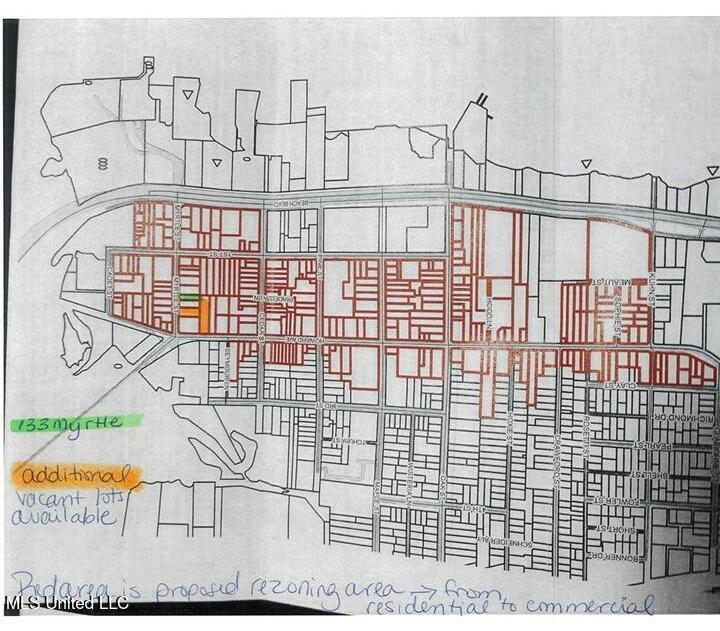 BEACH BLVD
MYRTLE ST
1ST ST
PINE ST
KUHN ST
MEAUT ST
SOPHIE ST
CADET ST
MYRTLE ST
CEDAR S
HODGI LN
HOWARD AVE
SEYMOUR LN
CLAY ST
3RD ST
133 Myrtle
HOXIE ST
RICHMOND DR
ROSETTI ST
TCHULA ST
PEARL ST
CRAWFORD ST
additional
SHELL ST
OAK ST
FOWLER ST
vacant lots
4TH ST
available
SHORT ST
SCHNEIDER ALY
BONNER DR
Red area is proposed rezoning area → from
residential to commercial
MLS United LLC